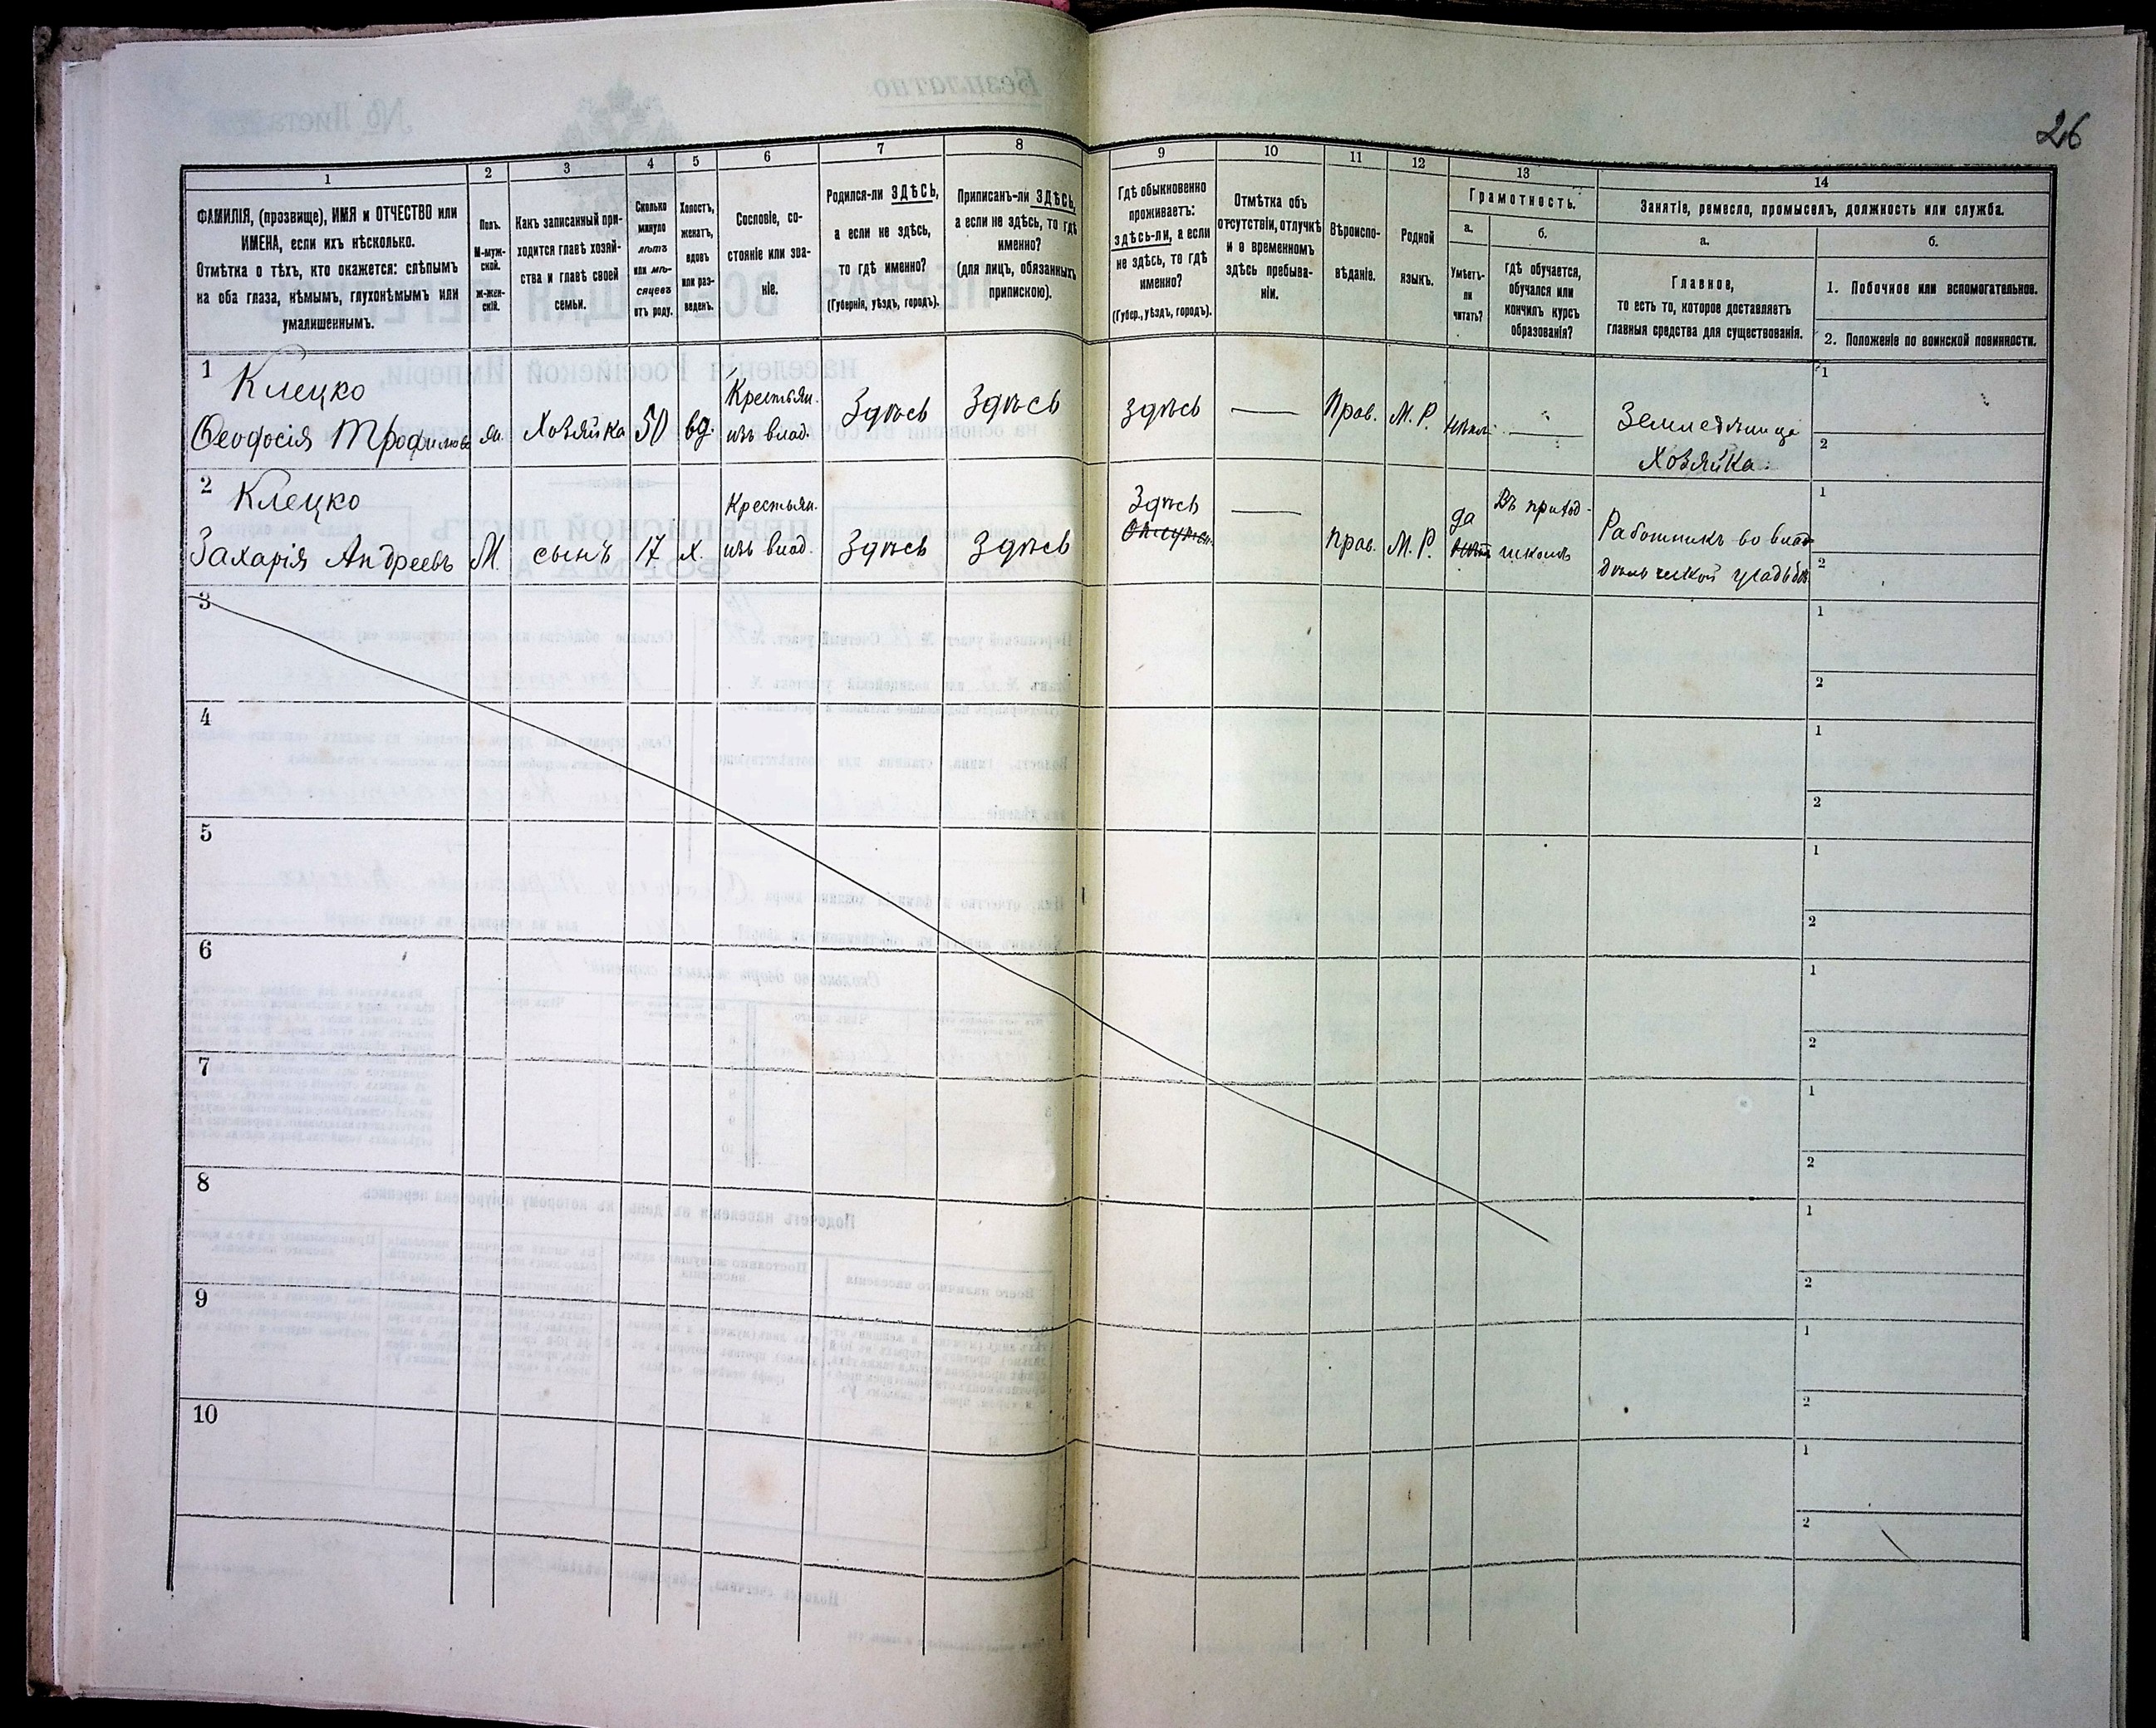 26
1
2
3
4
5
6
7
8
9
10
11
12
13
14
ФАМИЛІЯ, (прозвище), ИМЯ и ОТЧЕСТВО или
ИМЕНА, если ихъ нѣсколько.
Отмѣтка о тѣхъ, кто окажется: слѣпымъ
на оба глаза, нѣмымъ, глухонѣмымъ или
умалишеннымъ.
Полъ.
М-муж-
ской.
Ж-жен-
скій.
Какъ записанный при-
ходится главѣ хозяй-
ства и главѣ своей
семьи.
Сколько
минуло
лѣтъ
или мѣ-
сяцевъ
отъ роду.
Холостъ,
женатъ,
вдовъ
или раз-
веденъ.
Сословіе, со-
стояніе или зва-
ніе.
Родился-ли ЗДѢСЬ,
а если не здѣсь,
то гдѣ именно?
(Губернія, уѣздъ, городъ).
Приписанъ-ли ЗДѢСЬ,
а если не здѣсь, то гдѣ
именно?
(для лицъ, обязанныхъ
припискою).
Гдѣ обыкновенно
проживаетъ:
здѣсь-ли, а если
не здѣсь, то гдѣ
именно?
(Губер., уѣздъ, городъ).
Отмѣтка объ
отсутствіи, отлучкѣ
и о временномъ
здѣсь пребыва-
ніи.
Вѣроиспо-
вѣданіе.
Родной
языкъ.
Грамотность.
а.
Умѣетъ-
ли
читать?
б.
гдѣ обучается,
обучался или
кончилъ курсъ
образованія?
Занятіе, ремесло, промыселъ, должность или служба.
а.
Главное,
то есть то, которое доставляетъ
главныя средства для существованія.
б.
1. Побочное или вспомогательное.
2. Положеніе по воинской повинности.
1
Клецко
Ѳеодосія Трофимова
ж.
Хозяйка
50
вд.
Крестьян.
изъ влад.
Здѣсь
Здѣсь
Здѣсь
—
Прав.
М. Р.
—
Земледѣлица
Хозяйка
1
2
2
Клецко
Захарія Андреевъ
М.
сынъ
17
х.
Крестьян.
изъ влад.
Здѣсь
Здѣсь
Здѣсь
—
Прав.
М. Р.
да
Въ приход-
школѣ
Работникъ во вла-
дѣльческой усадьбѣ
1
2
3
1
2
4
1
2
5
1
2
6
1
2
7
1
2
8
1
2
9
1
2
10
1
2